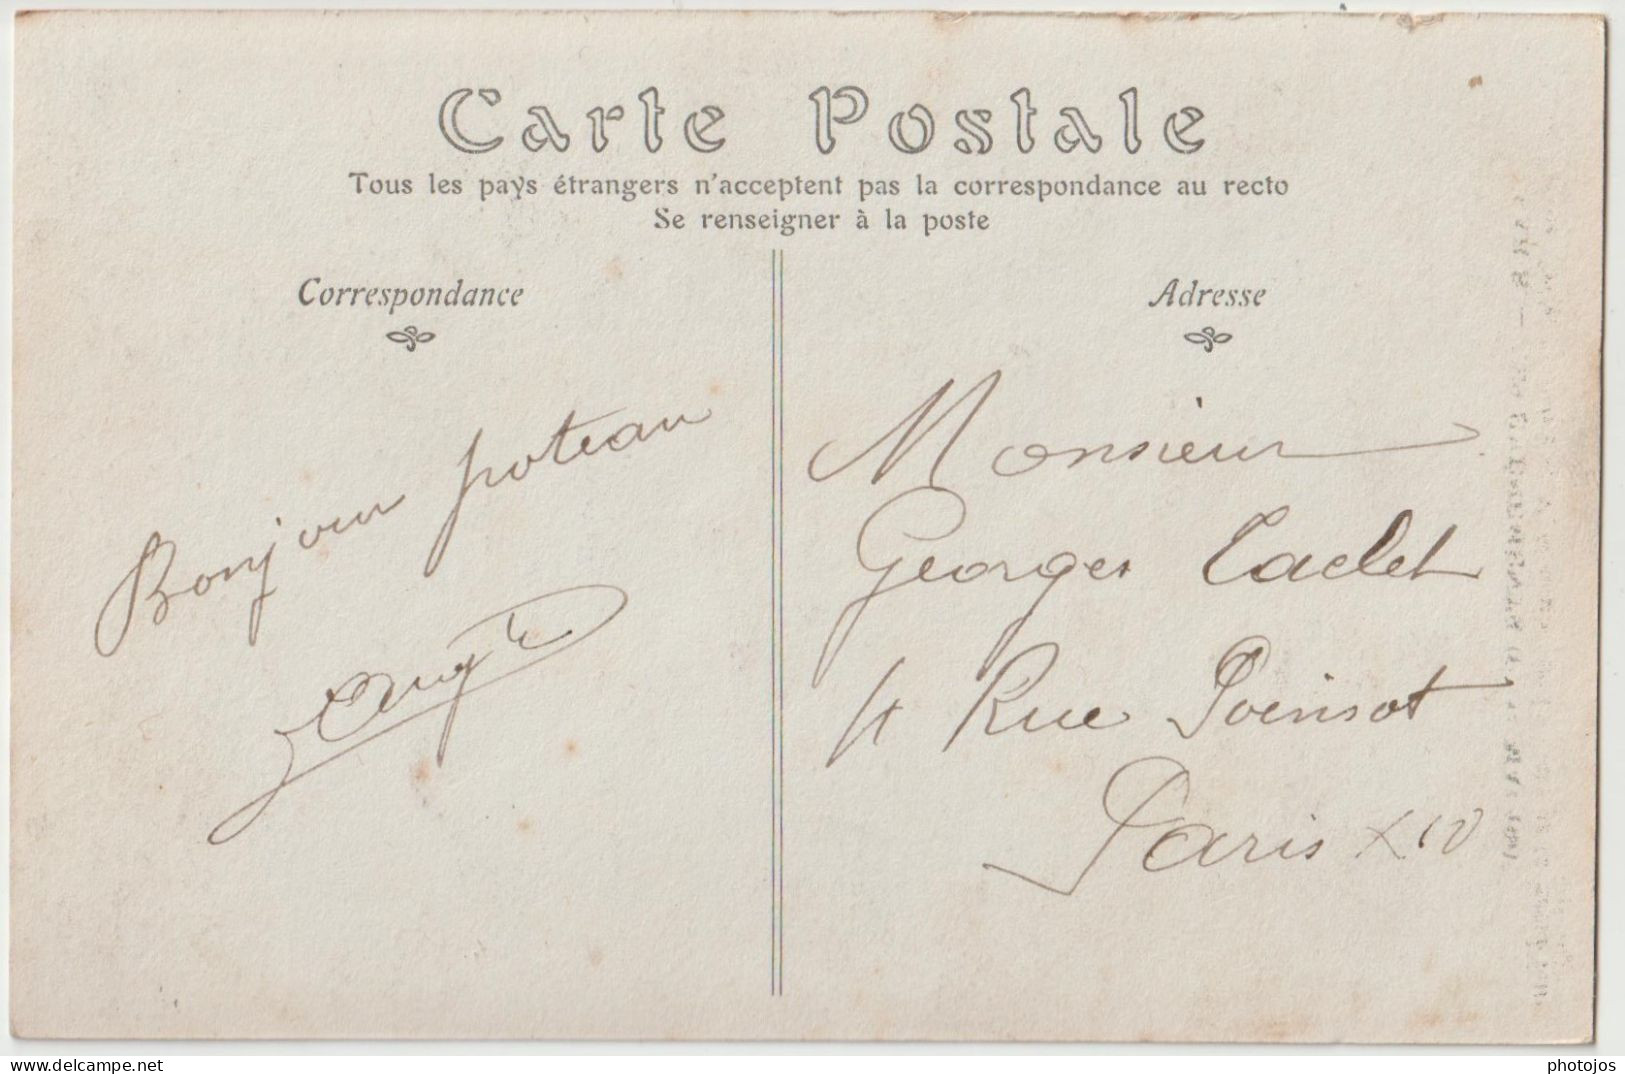 Carte Postale
Tous les pays étrangers n'acceptent pas la correspondance au recto
Se renseigner à la poste
Correspondance
Adresse
Bonjour poteau
Monsieur
Georges
4 Rue Poinsot
Paris XIV
www.delcampe.net
photojos